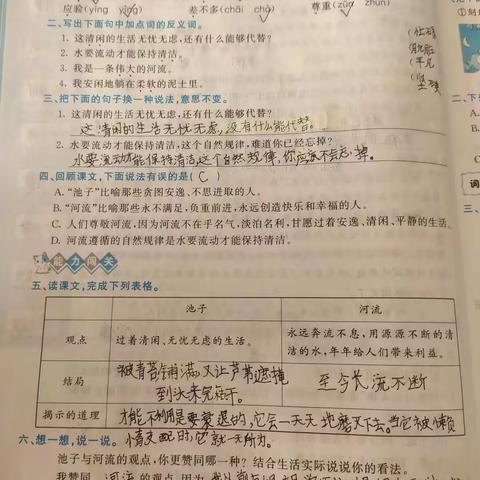 应验(yìng yīng) 差不多(chāi chà) 尊重(zūn zhūn)
二、写出下面句中加点词的反义词。
1. 这清闲的生活无忧无虑,还有什么能够代替?
2. 水要流动才能保持清洁。
3. 我是一条伟大的河流。
4. 我安闲地躺在柔软的泥土里。
三、把下面的句子换一种说法,意思不变。
1. 这清闲的生活无忧无虑,还有什么能够代替?
这清闲的生活无忧无虑,没有什么能代替。
2. 水要流动才能保持清洁,这个自然规律,难道你已经忘掉?
水要流动才能保持清洁这个自然规律,你应该不会忘掉。
四、回顾课文,下面说法有误的是( C )
A. “池子”比喻那些贪图安逸、不思进取的人。
B. “河流”比喻那些永不满足,负重前进,永远创造快乐和幸福的人。
C. 人们尊敬河流,因为河流不在乎名气,淡泊名利,甘愿过着安逸、清闲、平静的生活。
D. 河流遵循的自然规律是水要流动才能保持清洁。
能力闯关
五、读课文,完成下列表格。
池子 河流
观点 过着清闲、无忧无虑的生活。 永远奔流不息,用源源不断的清洁的水,年年给人们带来利益。
结局 被青苔铺满,又让芦苇遮掩到头来完枯干。 至今长流不断
揭示的道理 才能不利用是要衰退的,它会一天天地磨灭下去。当它被懒
六、想一想,说一说。 惰支配时,它就一无所为。
池子与河流的观点,你更赞同哪一种?结合生活实际说说你的看法。
我赞同 河流 的观点,因为